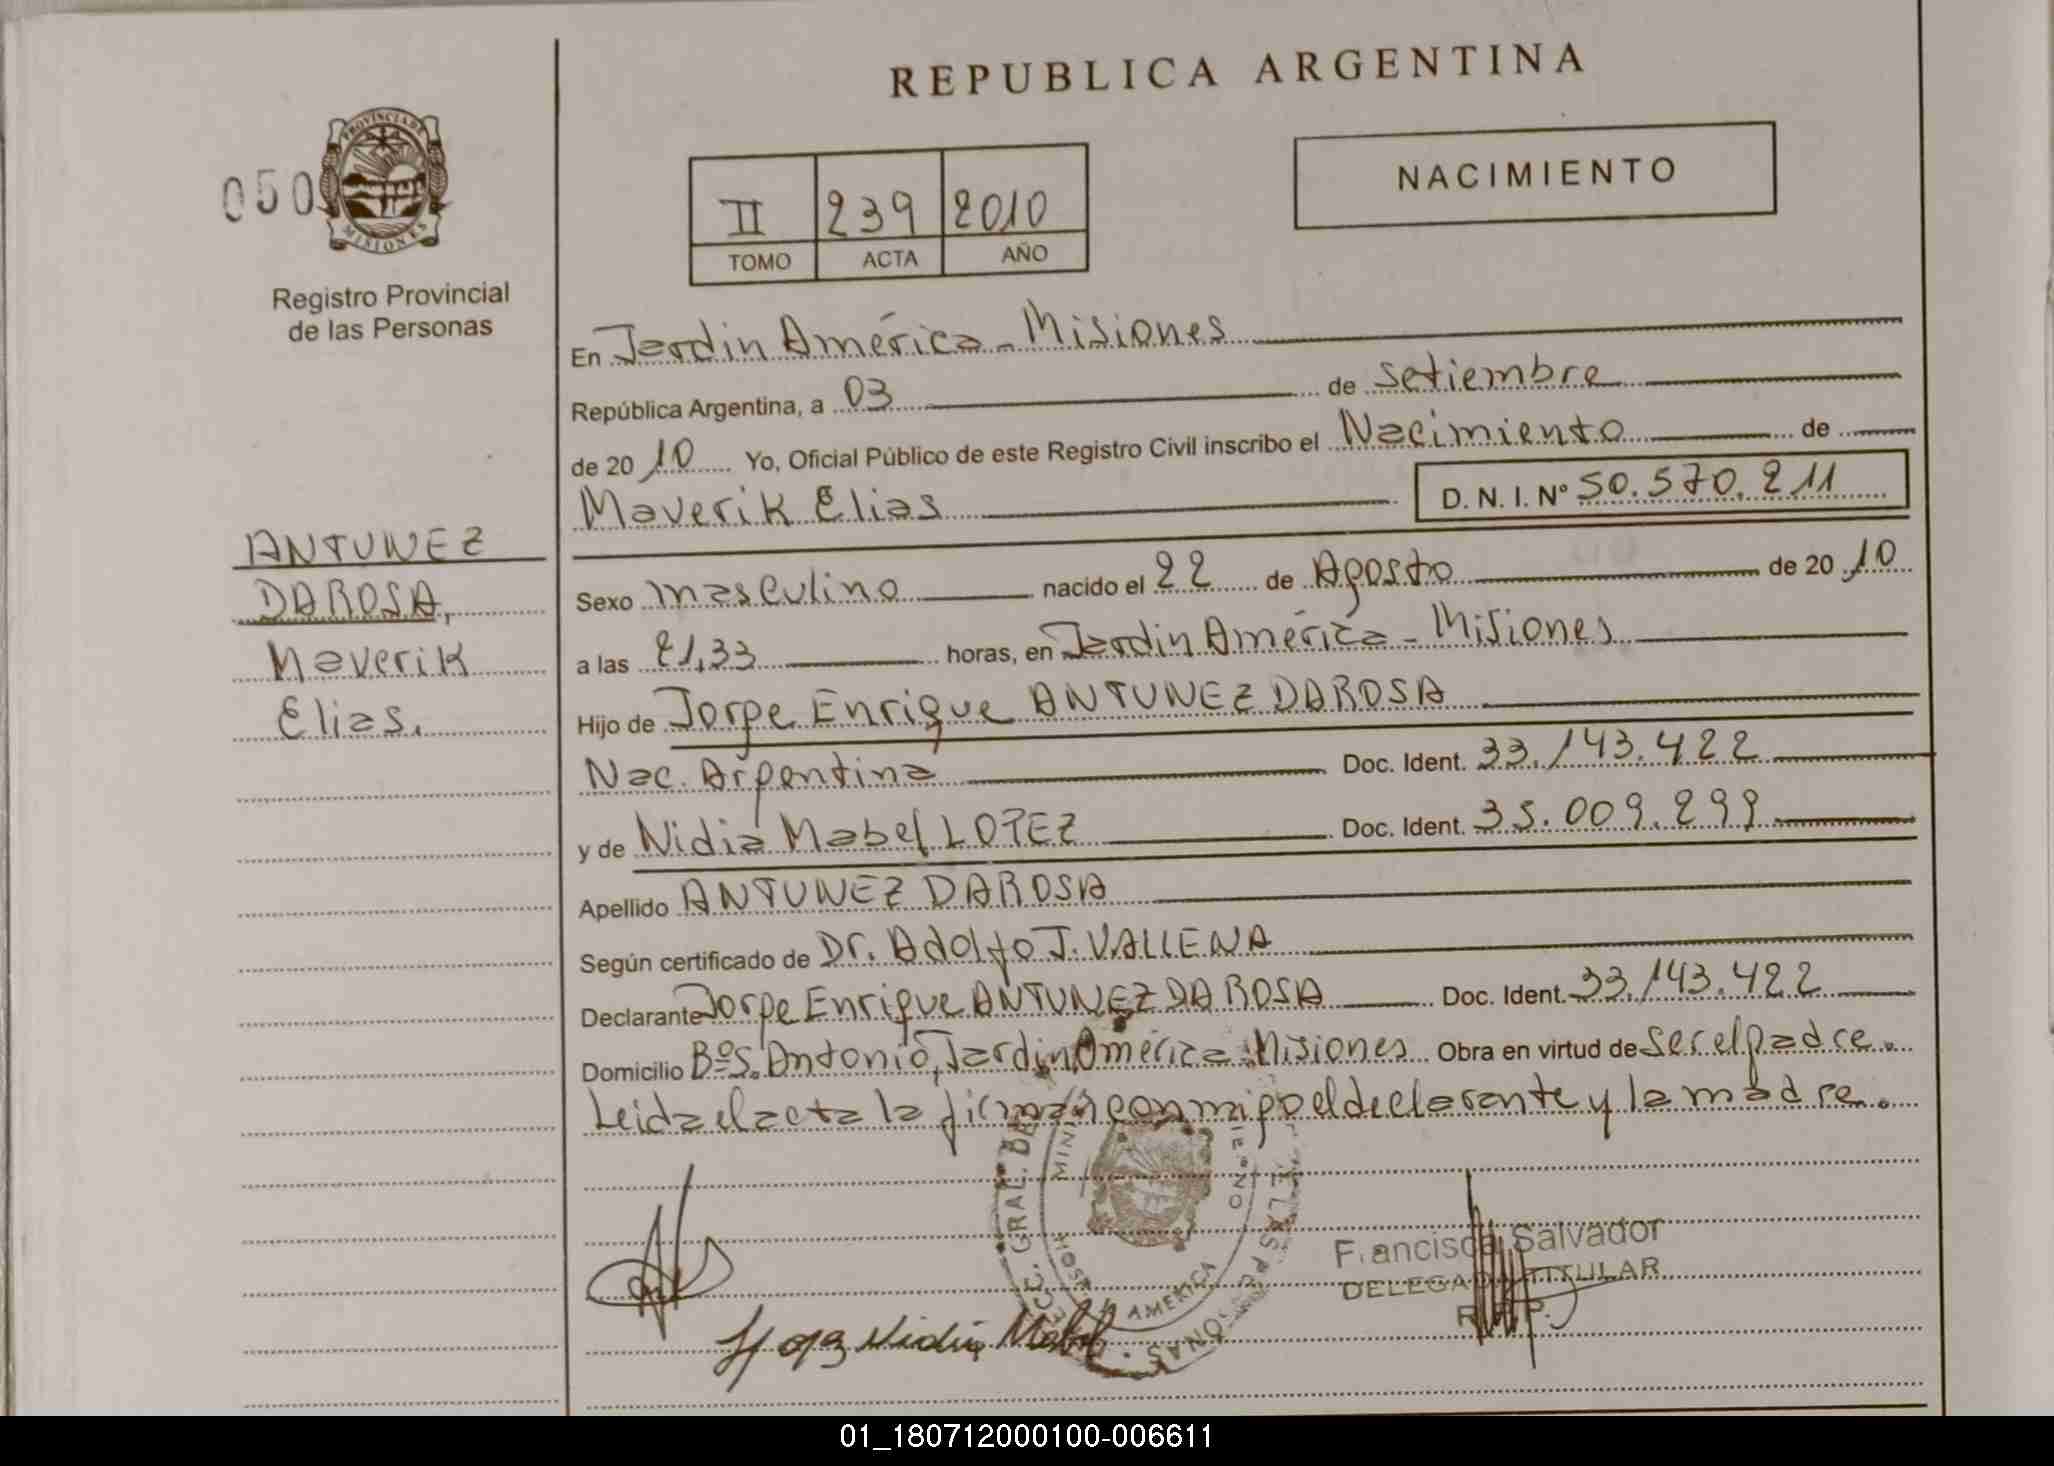 REPUBLICA ARGENTINA
050
PROVINCIA DE
MISIONES
Registro Provincial
de las Personas
II 239 2010
TOMO ACTA AÑO
NACIMIENTO
ANTUNEZ
DAROSA,
Maverik
Elias.
En Jardin América - Misiones
República Argentina, a 03 de setiembre
de 2010 Yo, Oficial Público de este Registro Civil inscribo el Nacimiento de
Maverik Elias D. N. I. Nº 50.570.211
Sexo masculino nacido el 22 de Agosto de 2010
a las 21,33 horas, en Jardin América - Misiones
Hijo de Jorge Enrique ANTUNEZ DAROSA
Nac. Argentina Doc. Ident. 33.143.422
y de Nidia Mabel LOPEZ Doc. Ident. 35.009.299
Apellido ANTUNEZ DAROSA
Según certificado de Dr. Adolfo J. VALLENA
Declarante Jorge Enrique ANTUNEZ DAROSA Doc. Ident. 33.143.422
Domicilio Bº S. Antonio, Jardin América Misiones Obra en virtud de ser el padre.
Leida el acta la firman conmigo el declarante y la madre.
GRAL. DE LAS PERSONAS
AMERICA
Francisca Salvador
DELEGADA TITULAR
R. P. P.
Lopez Nidia Mabel
01_180712000100-006611